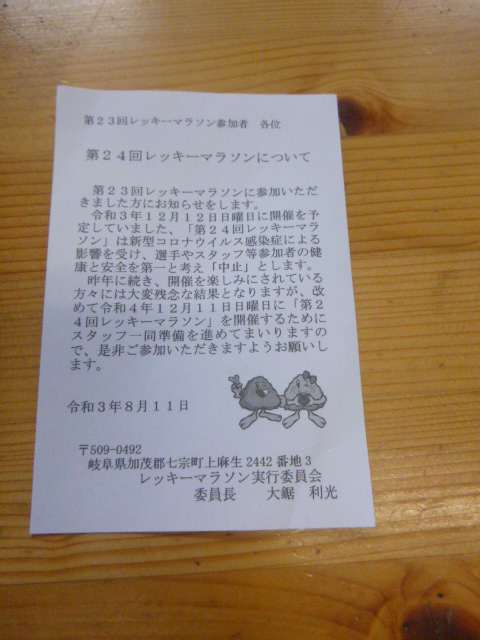 第２３回レッキーマラソン参加者　各位
第２４回レッキーマラソンについて
　第２３回レッキーマラソンに参加いただ
きました方にお知らせをします。
　令和３年１２月１２日日曜日に開催を予
定していました、「第２４回レッキーマラ
ソン」は新型コロナウイルス感染症による
影響を受け、選手やスタッフ等参加者の健
康と安全を第一と考え「中止」とします。
　昨年に続き、開催を楽しみにされている
方々には大変残念な結果となりますが、改
めて令和４年１２月１１日日曜日に「第２
４回レッキーマラソン」を開催するために
スタッフ一同準備を進めてまいりますの
で、是非ご参加いただきますようお願いし
ます。
令和３年８月１１日
〒509-0492
岐阜県加茂郡七宗町上麻生 2442 番地 3
レッキーマラソン実行委員会
委員長　　大鋸　利光